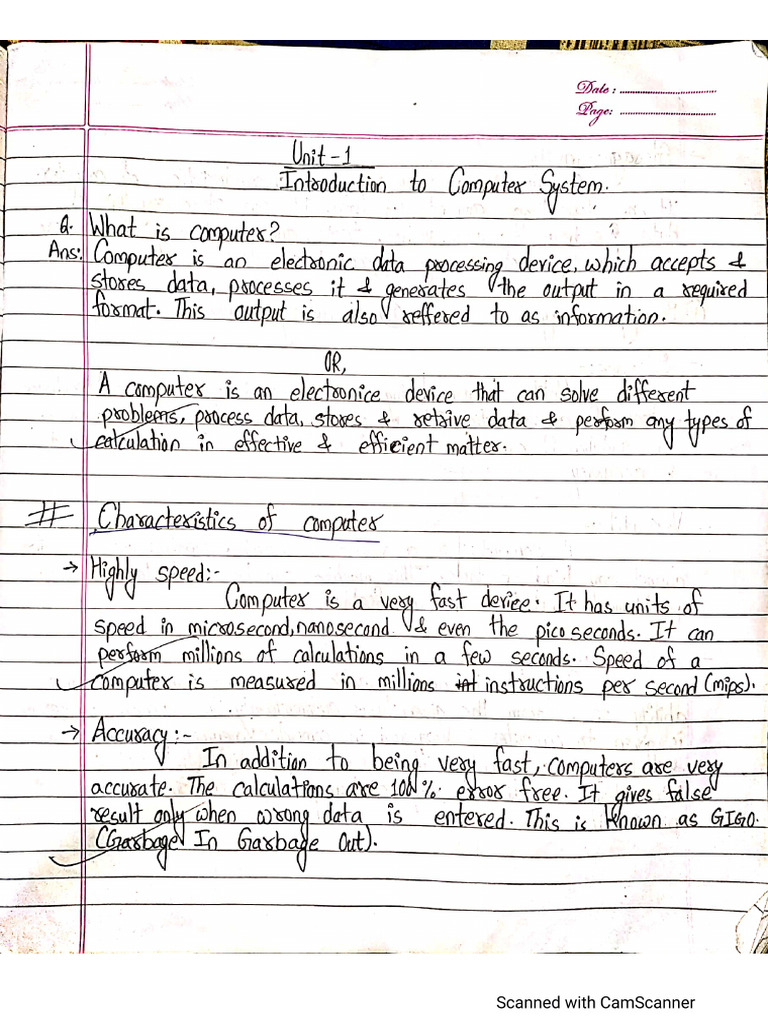 Date : ..............................
Page: ..............................
Unit - 1
Introduction to Computer System.
Q. What is computer?
Ans: Computer is an electronic data processing device, which accepts &
stores data, processes it & generates the output in a required
format. This output is also reffered to as information.
OR,
A computer is an electronice device that can solve different
problems, process data, stores & retrive data & perform any types of
calculation in effective & efficient matter.
# Characteristics of computer
→ Highly speed:-
Computer is a very fast device. It has units of
speed in microsecond, nanosecond & even the pico seconds. It can
perform millions of calculations in a few seconds. Speed of a
computer is measured in millions int instructions per second (mips).
→ Accuracy :-
In addition to being very fast, computers are very
accurate. The calculations are 100 % error free. It gives false
result only when wrong data is entered. This is known as GIGO.
(Garbage In Garbage Out).
Scanned with CamScanner